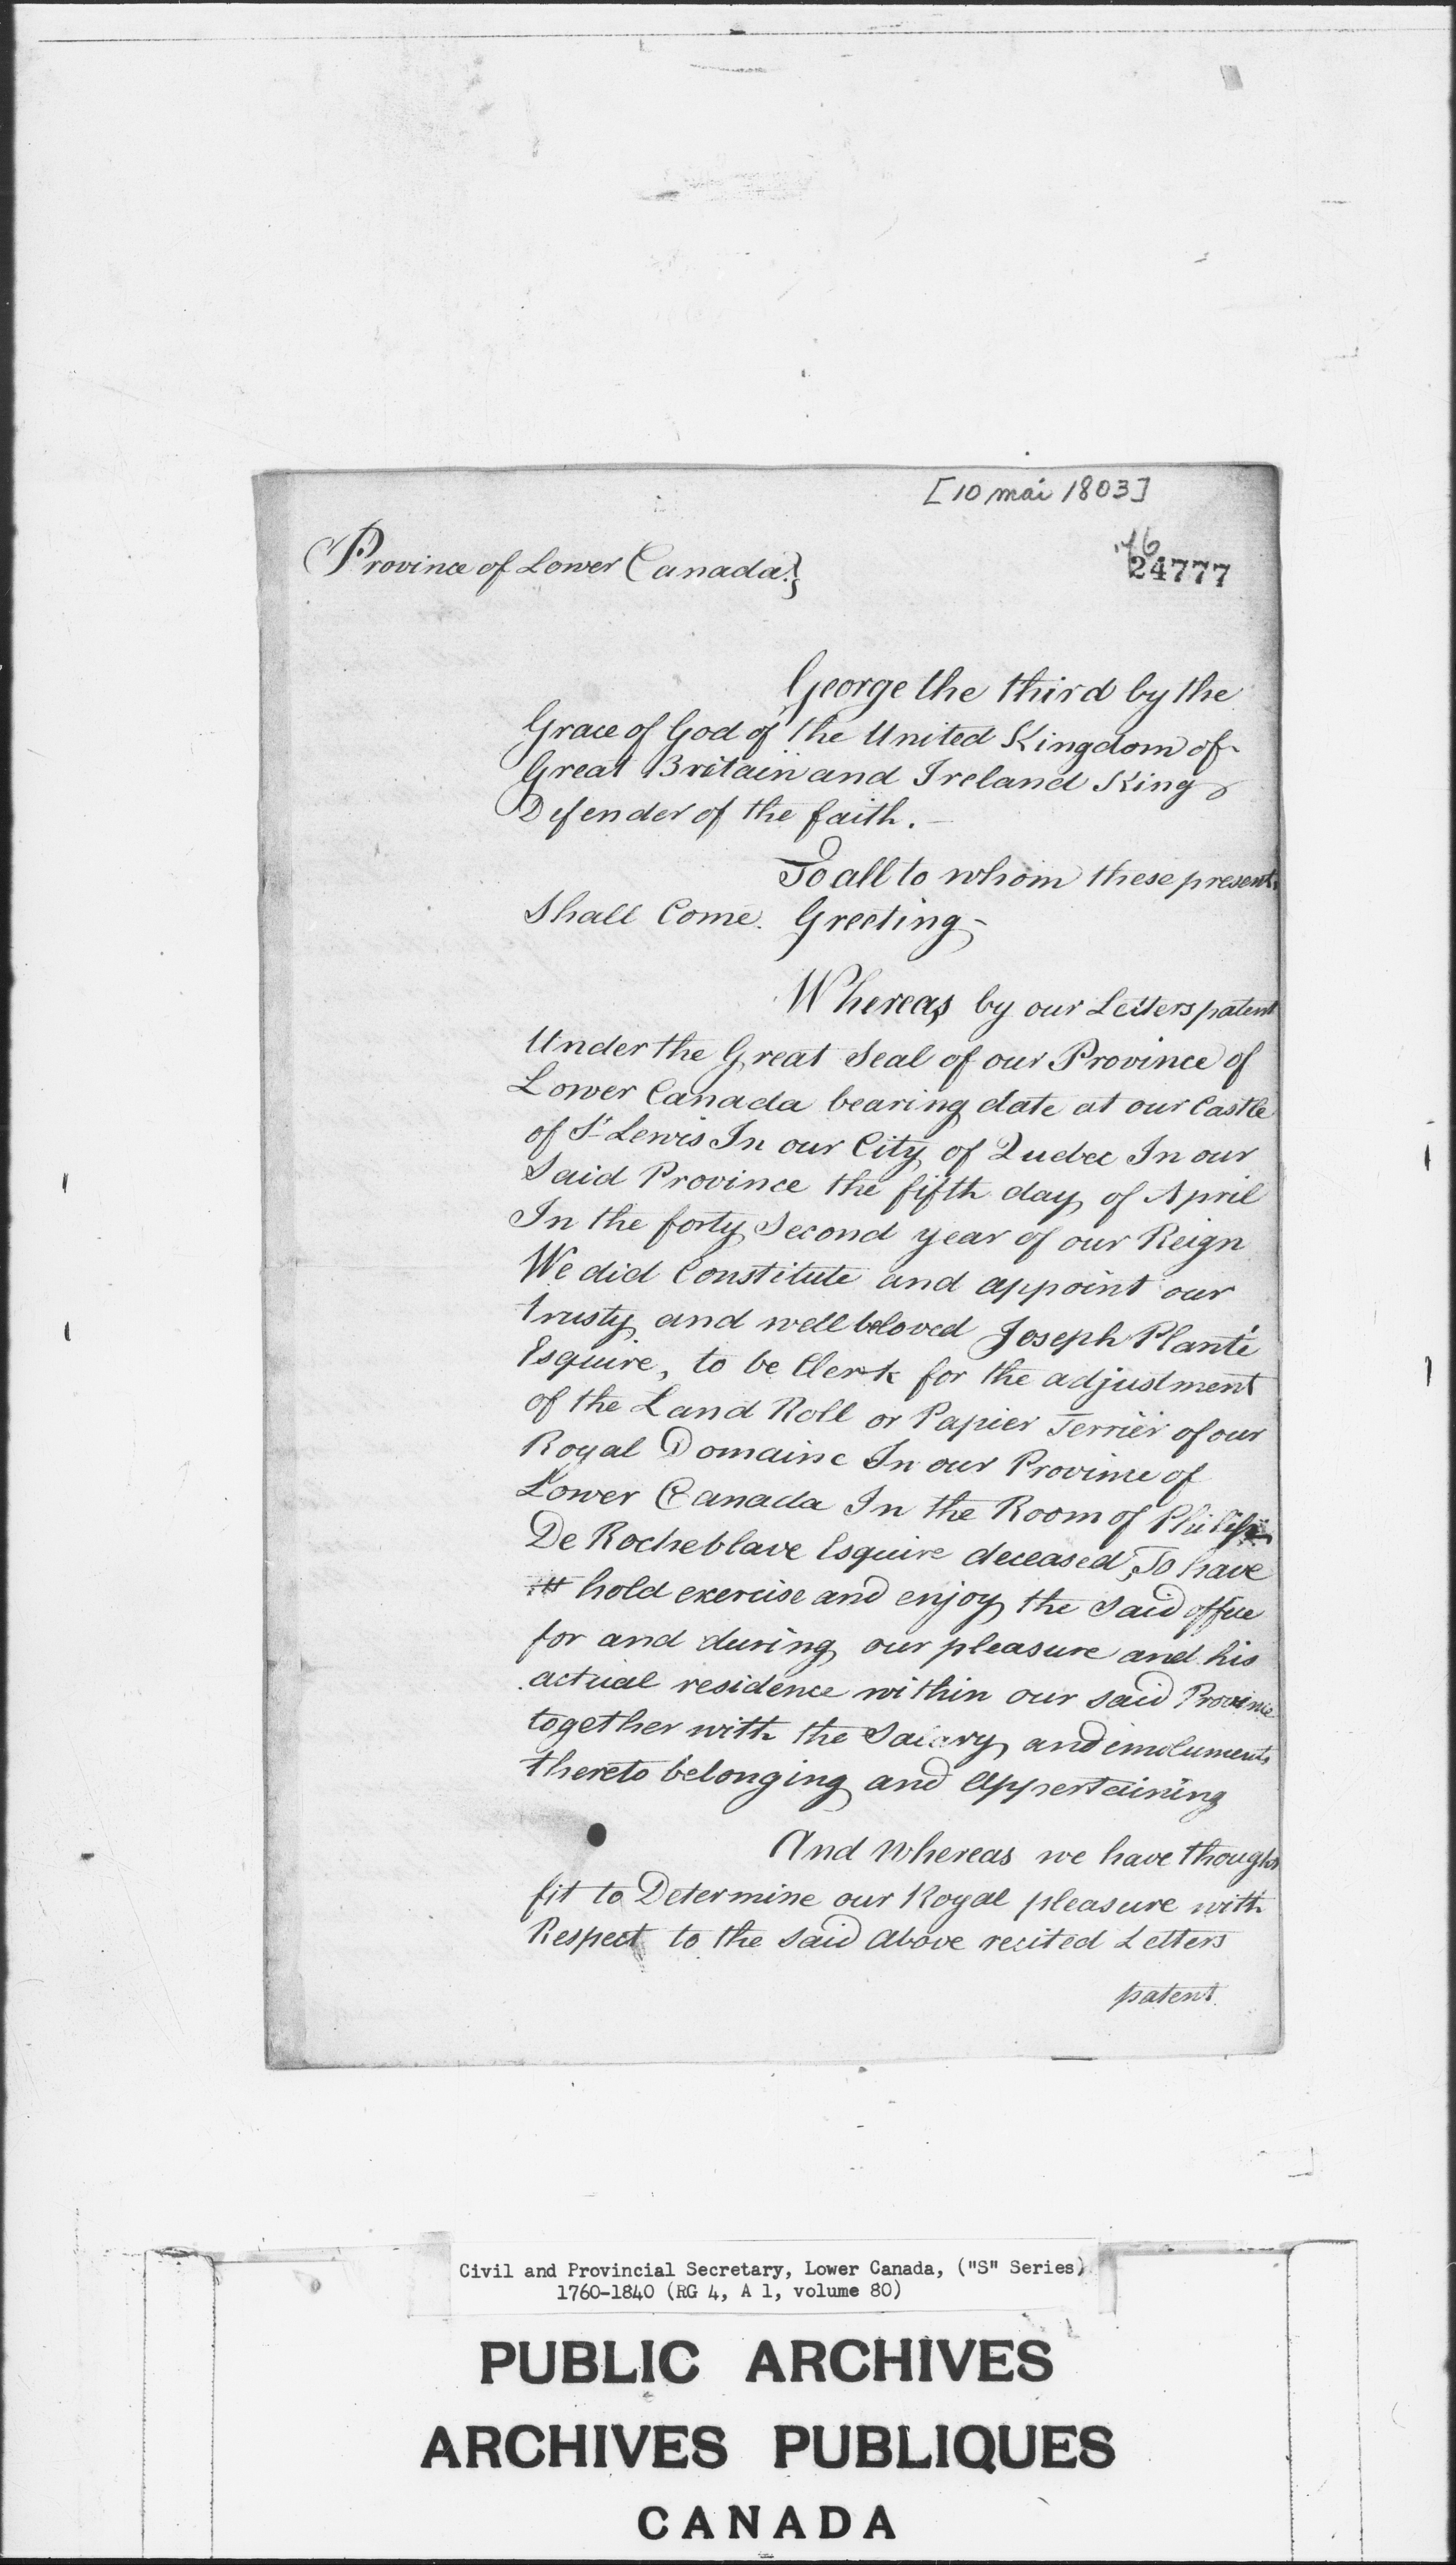 [10 mai 1803]
Province of Lower Canada}
46
24777
George the third by the
Grace of God of the United Kingdom of
Great Britain and Ireland King
Defender of the faith. –
To all to whom these presents
Shall Come. Greeting –
Whereas by our Letters patent
Under the Great Seal of our Province of
Lower Canada bearing date at our Castle
of St Lewis In our City of Quebec In our
Said Province the fifth day of April
In the forty Second year of our Reign
We did Constitute and appoint our
trusty and well beloved Joseph Planté
Esquire, to be Clerk for the adjustment
of the Land Roll or Papier Terrier of our
Royal Domaine In our Province of
Lower Canada In the Room of Philip
De Rocheblave Esquire deceased, To have
hold exercise and enjoy the Said office
for and during our pleasure and his
actual residence within our said Province
together with the Salary and emoluments
thereto belonging and Appertaining
And Whereas we have thought
fit to Determine our Royal pleasure with
Respect to the Said Above recited Letters
patent
Civil and Provincial Secretary, Lower Canada, ("S" Series)
1760-1840 (RG 4, A 1, volume 80)
PUBLIC ARCHIVES
ARCHIVES PUBLIQUES
CANADA